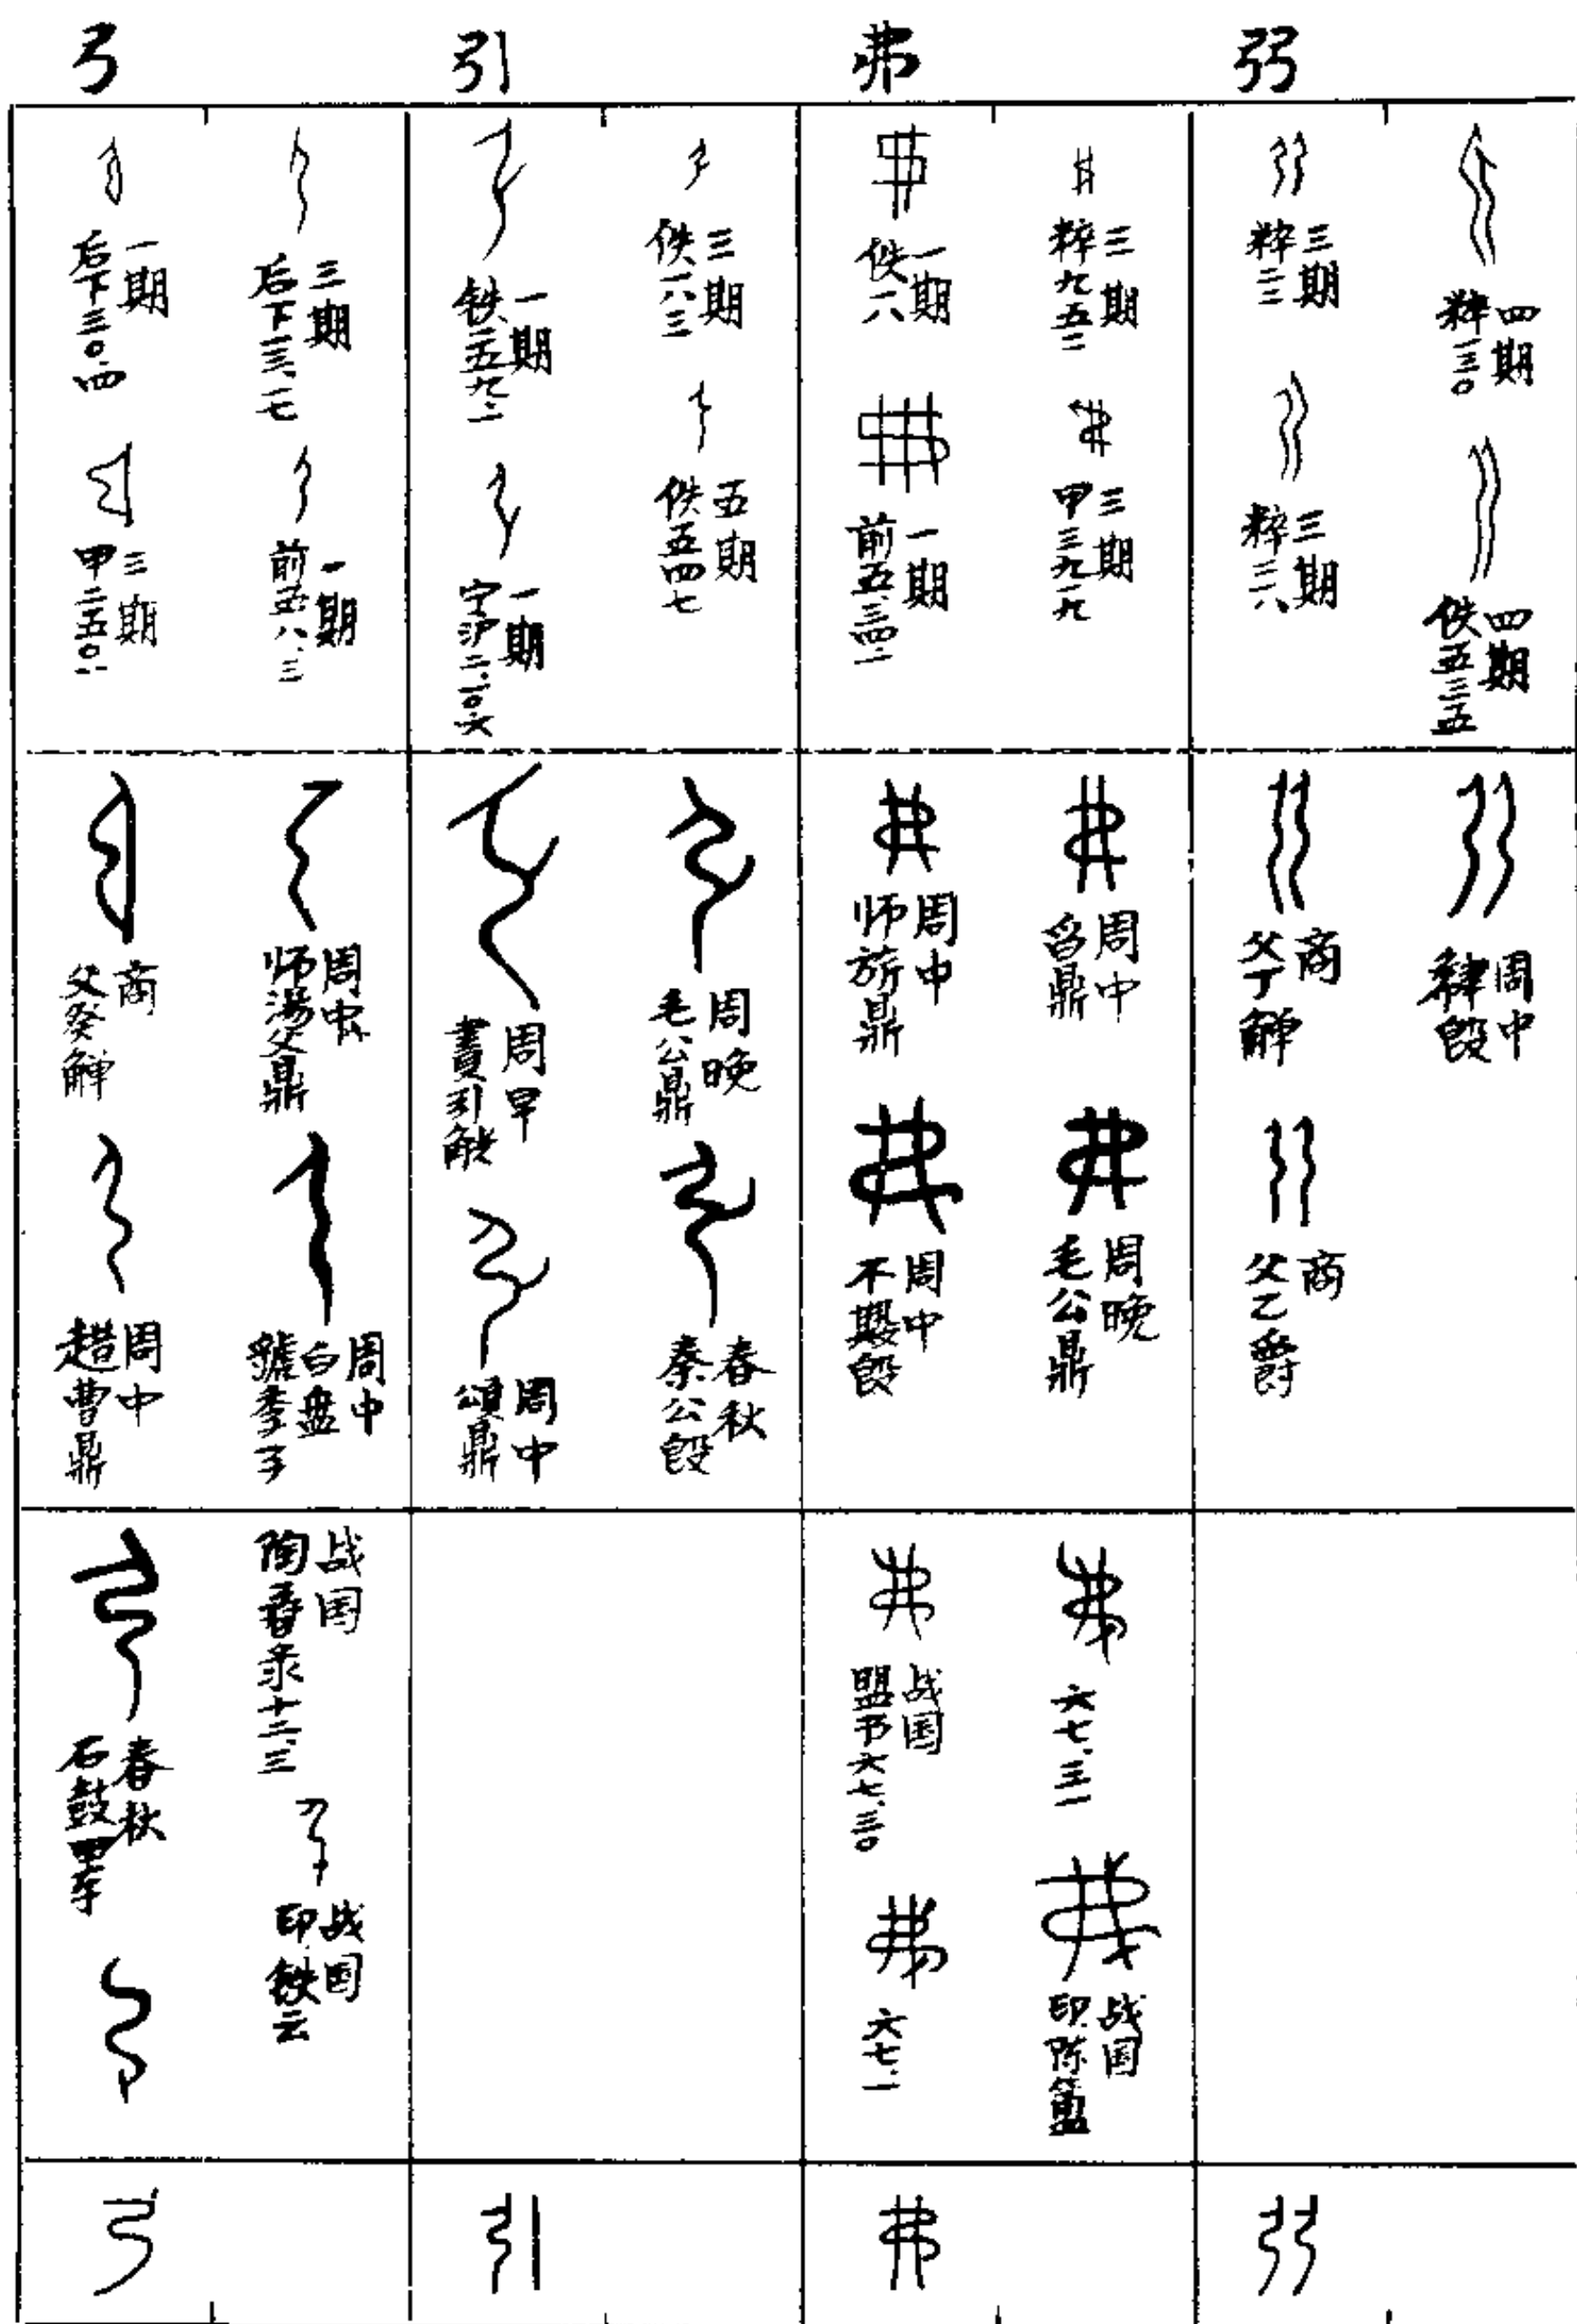 弓
引
弗
弜
一期
后下三〇.四
三期
甲二五〇一
三期
后下一三.一七
一期
前五.八.三
一期
铁一五九.一
一期
宁沪二.一〇六
三期
佚一八三
五期
佚五四七
一期
佚一八
一期
前五.三四.一
三期
粹九五二
三期
甲三九一九
三期
粹二二
三期
粹三六
四期
粹一三〇
四期
佚五三五
商
父癸觯
周中
趞曹鼎
周中
师湯父鼎
周中
虢季子白盘
周早
周中
頌鼎
周晚
毛公鼎
春秋
秦公𣪘
周中
师旂鼎
周中
不𡢁𣪘
周中
曶鼎
周晚
毛公鼎
商
父丁觯
商
父乙爵
周中
𣪘
春秋
石鼓
战国
陶㫬录十二.三
战国
印铁云
战国
盟书六七.三〇
六七.一
六七.三一
战国
印陈簠
弓
引
弗
弜